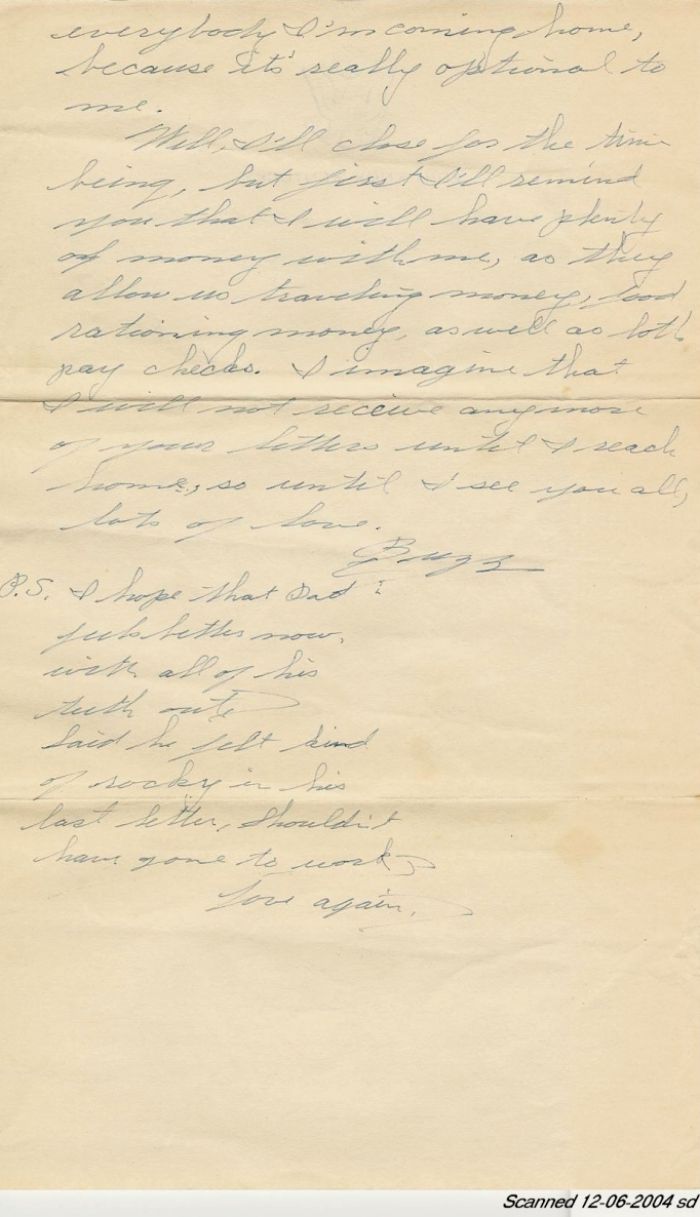 everybody I'm coming home,
because it's really optional to
me.
Well, I'll close for the time
being, but first I'll remind
you that I will have plenty
of money with me, as they
allow us traveling money, food
rationing money, as well as both
pay checks. I imagine that
I will not receive anymore
of your letters until I reach
home, so until I see you all,
lots of love.
Buzz
P.S. I hope that Dad
feels better now,
with all of his
teeth out.
Said he felt kind
of rocky in his
last letter, Shouldn't
have gone to work.
Love again,
Scanned 12-06-2004 sd